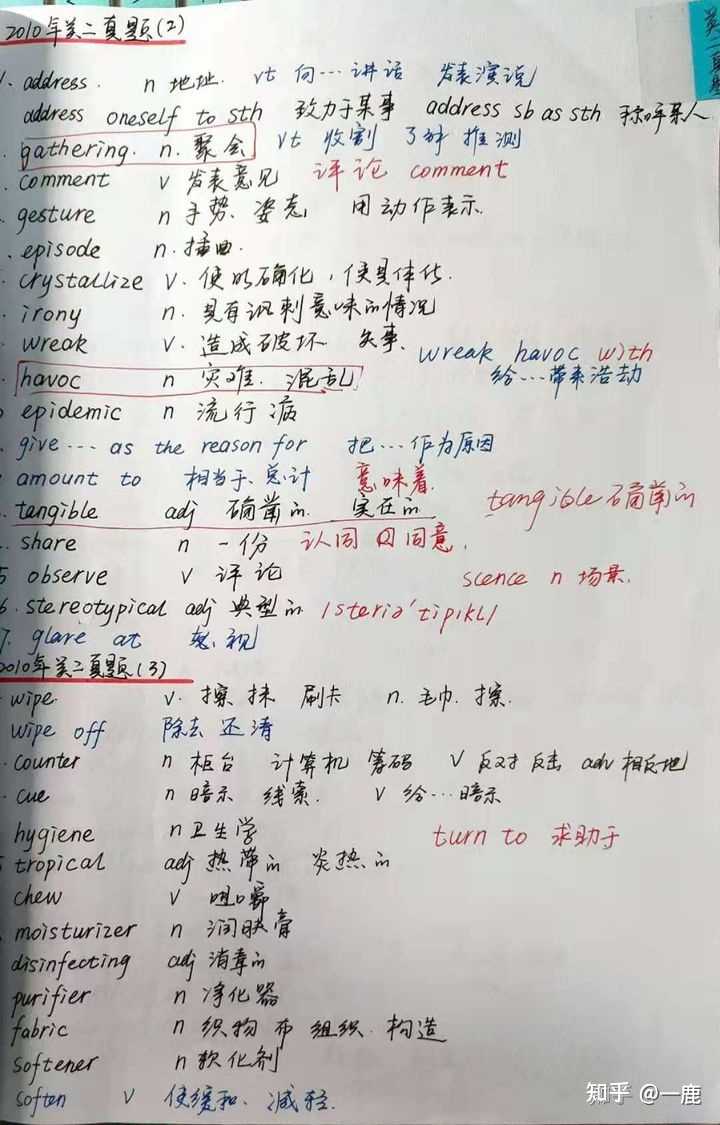 2010年英二真题(2)
address. n 地址. vt 向…讲话 发表演说
address oneself to sth 致力于某事 address sb as sth 称呼某人
gathering. n. 聚会 vt 收割 了解 推测
comment v 发表意见 评论 comment
gesture n 手势. 姿态 用动作表示.
episode n. 插曲.
crystallize v. 使明确化, 使具体化.
irony n. 具有讽刺意味的情况
wreak v. 造成破坏 wreak havoc with
havoc n 灾难. 混乱 给…带来浩劫
epidemic n 流行病
give … as the reason for 把…作为原因
amount to 相当于、总计 意味着.
tangible adj 确凿的. 实在的 tangible 确凿的
share n 一份 认同 同意.
observe v 评论 scence n 场景.
6. stereotypical adj 典型的 /steriə'tipikl/
7. glare at 怒视
2010年英二真题(3)
wipe. v. 擦 抹 刷卡 n. 毛巾. 擦.
wipe off 除去 还清
counter n 柜台 计算机 筹码 v 反对 反击 adv 相反地
cue n 暗示 线索. v 给…暗示
hygiene n 卫生学 turn to 求助于
tropical adj 热带的 炎热的
chew v 咀嚼
moisturizer n 润肤膏
disinfecting adj 消毒的
purifier n 净化器
fabric n 织物 布 组织. 构造
softener n 软化剂
soften v 使缓和. 减轻.
知乎 @一鹿